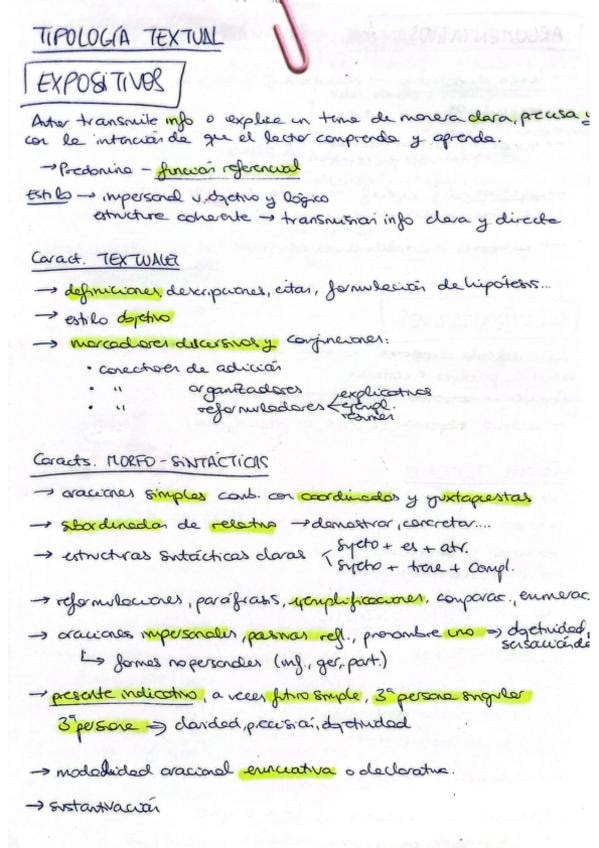 TIPOLOGÍA TEXTUAL
EXPOSITIVOS
Autor transmite info o explica un tema de manera clara, precisa y
con la intención de que el lector comprenda y aprenda.
→ Predomina - función referencial
Estilo → impersonal u objetivo y lógico
estructura coherente → transmisión info clara y directa
Caract. TEXTUALES
→ definiciones, descripciones, citas, formulación de hipótesis...
→ estilo objetivo
→ marcadores discursivos y conjunciones:
• conectores de adición
• " organizadores
• " reformuladores explicativos
ejempl.
resumen
Caracts. MORFO-SINTÁCTICAS
→ oraciones simples comb. con coordinadas y yuxtapuestas
→ subordinadas de relativo → demostrar, concretar....
→ estructuras sintácticas claras sujeto + es + atr.
sujeto + tiene + compl.
→ reformulaciones, paráfrasis, ejemplificaciones, comparac., enumerac.
→ oraciones impersonales, pasivas refl., pronombre uno ⇒ objetividad,
↳ formas no personales (inf., ger., part.)
→ presente indicativo, a veces futuro simple, 3ª persona singular
3ª persona ⇒ claridad, precisión, objetividad
→ modalidad oracional enunciativa o declarativa.
→ sustantivación